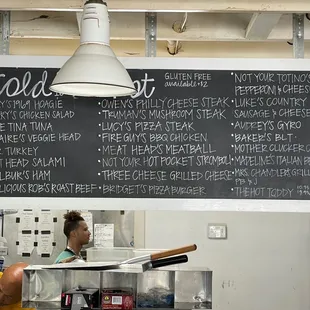 Cold
ot
Gluten Free
available +2
y's 1969 Hoagie
ry's Chicken Salad
e Tina Tuna
aire's Veggie Head
r Turkey
t Head Salami
ilbur's Ham
licious Rob's Roast Beef
Owen's Philly Cheese Steak
Truman's Mushroom Steak
Lucy's Pizza Steak
Fireguy's BBQ Chicken
Meat Head's Meatball
Not Your Hot Pocket Stromboli
Three Cheese Grilled Cheese
Bridget's Pizza Burger
Not Your Totino's
Pepperoni & Cheese
Luke's Country
Sausage & Cheese
Audrey's Gyro
Baker's BLT
Mother Clucker
Madeline's Italian
Mrs. Chandler's Grill
The Hot Toddy